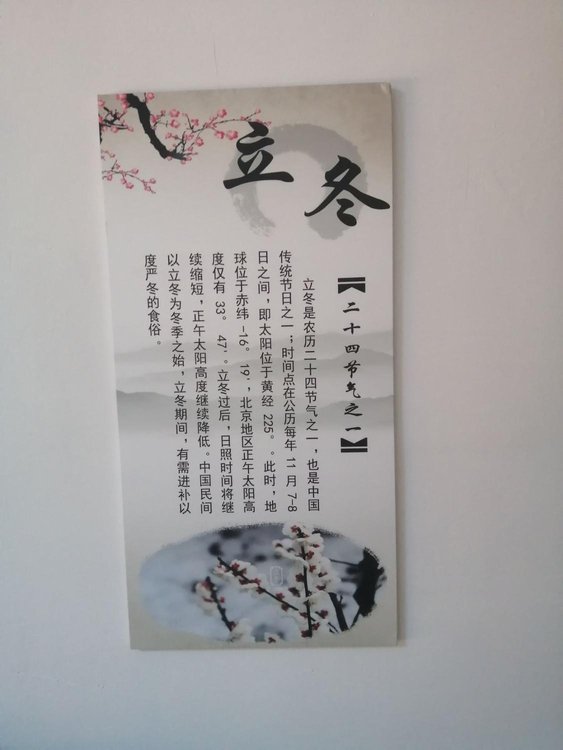 立冬
【二十四节气之一】
立冬是农历二十四节气之一，也是中国
传统节日之一；时间点在公历每年 11 月 7-8
日之间，即太阳位于黄经 225。。此时，地
球位于赤纬 -16。 19'，北京地区正午太阳高
度仅有 33。 47'。立冬过后，日照时间将继
续缩短，正午太阳高度继续降低。中国民间
以立冬为冬季之始，立冬期间，有需进补以
度严冬的食俗。